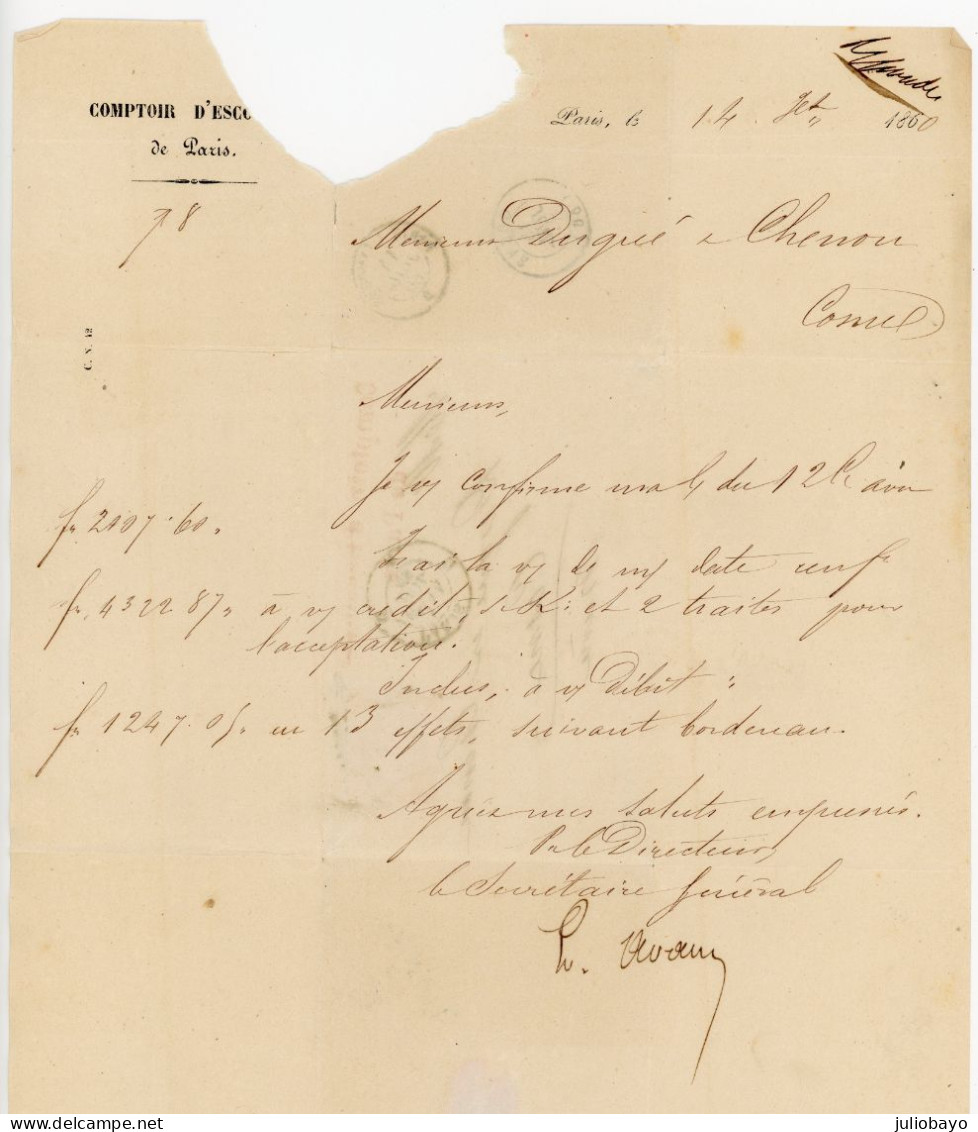 COMPTOIR D'ESCO
de Paris.
Paris, le 14 Jet 1860
78
Messieurs Dergrié & Chenou
C. N. 12
Messieurs,
Je vs confirme ma du 12 Ct
fr 2107.60
vs de date
fr. 4322.87 à vs crédit, et 2 traites pour
l'acceptation.
Inclus, à vs Débit
fr 1247.05 en 13 effets, suivant bordereau.
Agréez mes saluts empressés.
Pr le Directeur,
le Secrétaire Général
juliobayo